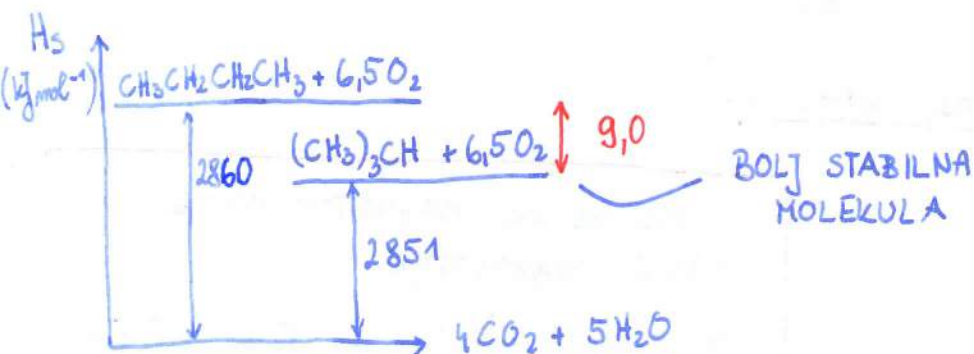 Hs
(kJ mol⁻¹)
CH₃CH₂CH₂CH₃ + 6,5O₂
(CH₃)₃CH + 6,5O₂
9,0
BOLJ STABILNA
MOLEKULA
2860
2851
4CO₂ + 5H₂O